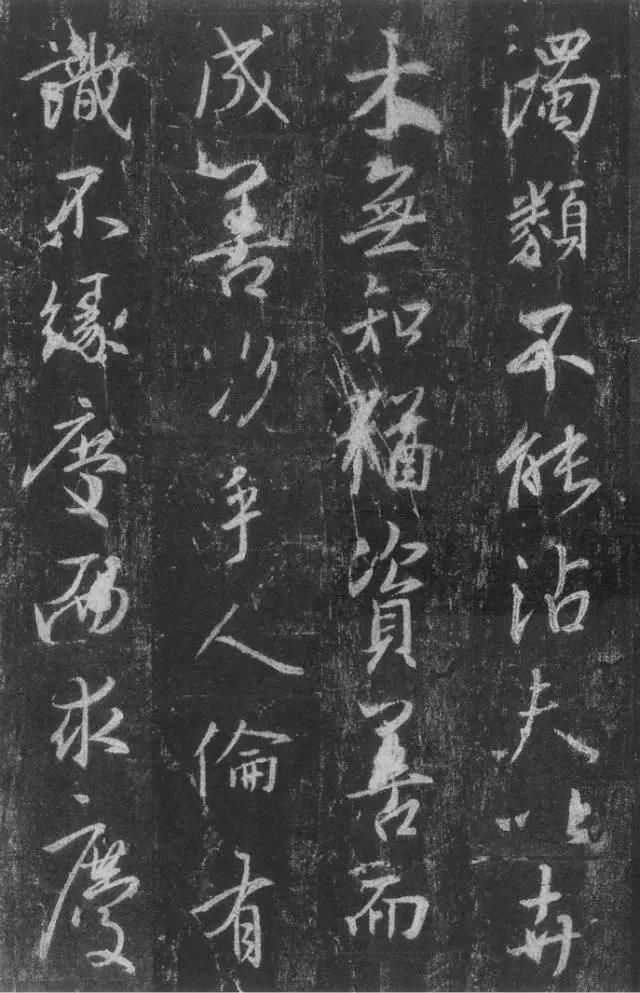 濁類不能沾夫以卉
木無知猶資善而
成善况乎人倫有
識不緣慶而求慶